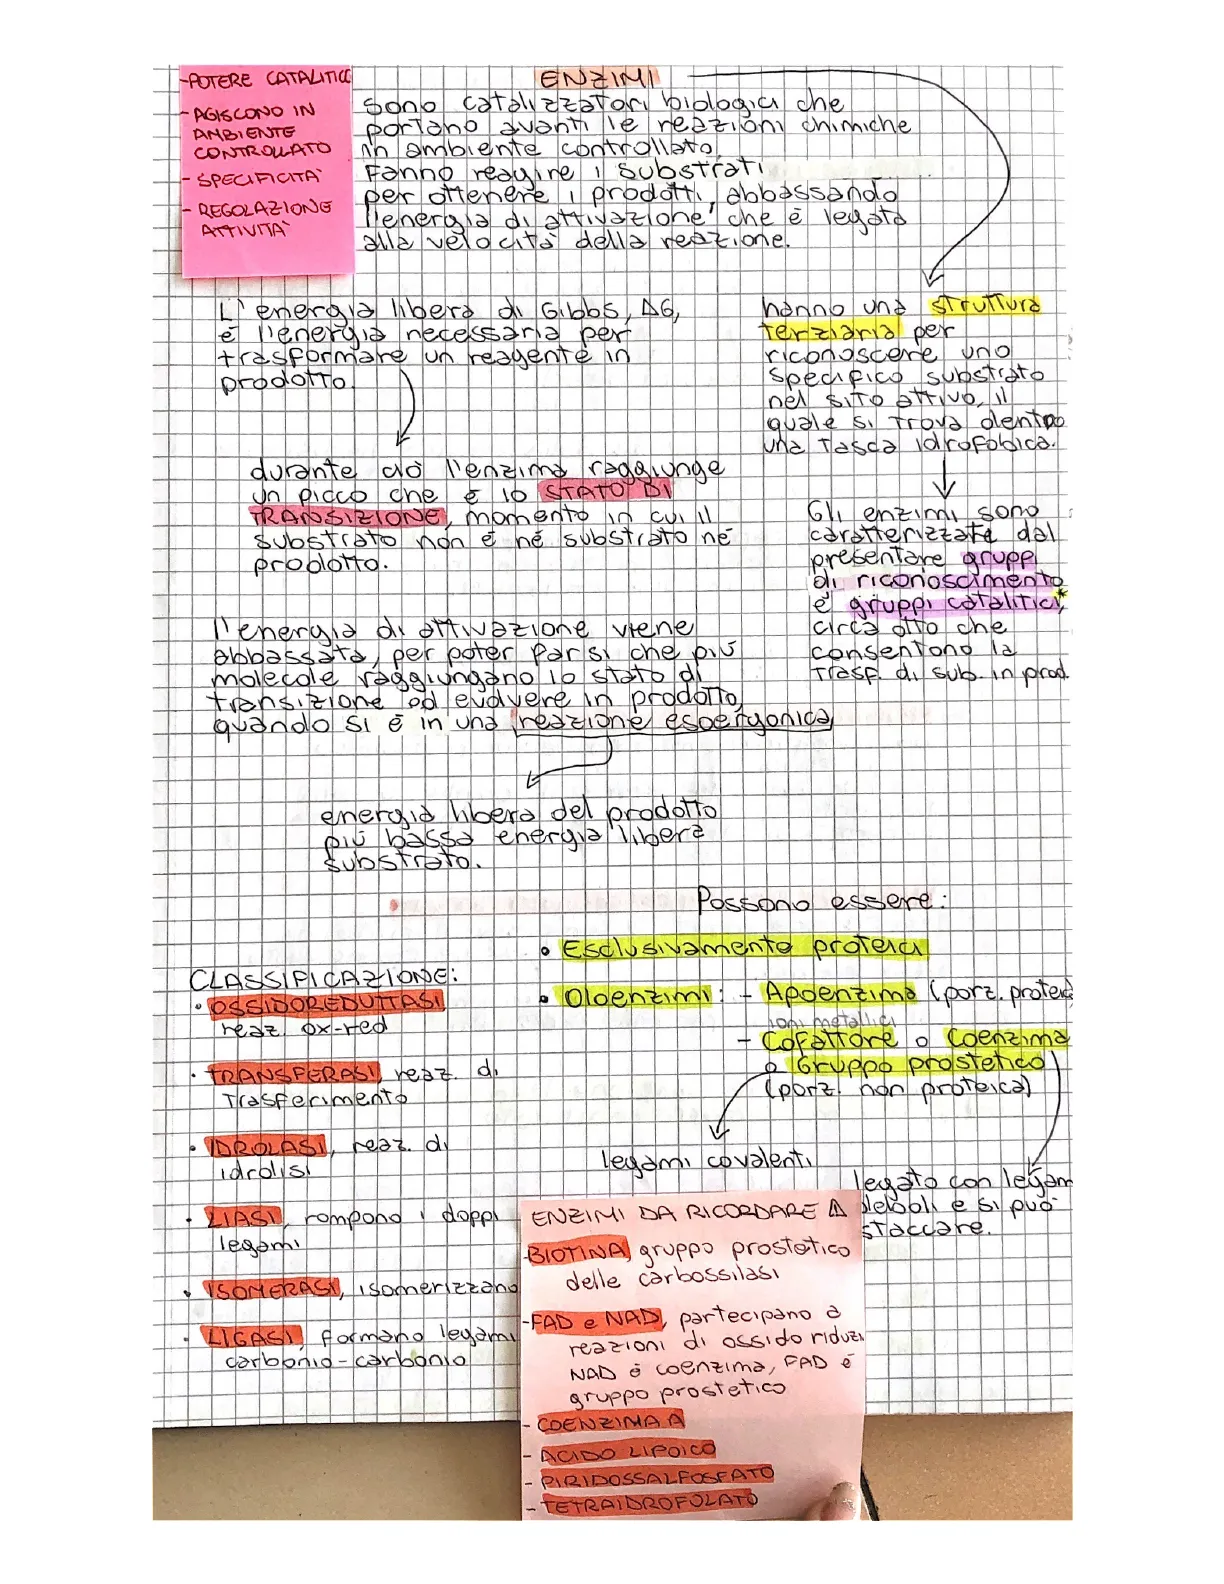 -POTERE CATALITICO
- AGISCONO IN
AMBIENTE
CONTROLLATO
- SPECIFICITA'
- REGOLAZIONE
ATTIVITA'
ENZIMI
sono catalizzatori biologici che
portano avanti le reazioni chimiche
in ambiente controllato
Fanno reagire i substrati
per ottenere i prodotti, abbassando
l'energia di attivazione, che è legata
alla velocità della reazione.
L'energia libera di Gibbs, ΔG,
è l'energia necessaria per
trasformare un reagente in
prodotto.
durante ciò l'enzima raggiunge
un picco che è lo STATO DI
TRANSIZIONE, momento in cui il
substrato non è né substrato né
prodotto.
l'energia di attivazione viene
abbassata, per poter far si che più
molecole raggiungano lo stato di
transizione ed evolvere in prodotto,
quando si è in una reazione esoergonica
energia libera del prodotto
più bassa energia libera
substrato.
hanno una struttura
terziaria per
riconoscere uno
specifico substrato
nel sito attivo, il
quale si trova dentro
una tasca idrofobica.
Gli enzimi sono
caratterizzate dal
presentare gruppi
di riconoscimento
e gruppi catalitici*,
circa otto che
consentono la
trasf. di sub. in prod.
Possono essere:
• Esclusivamente proteici
• Oloenzimi: - Apoenzima (porz. proteica
ioni metallici
- Cofattore o Coenzima
o Gruppo prostetico
(porz. non proteica)
legami covalenti
legato con legami
deboli e si può
staccare.
CLASSIFICAZIONE:
• OSSIDOREDUTTASI,
reaz. ox-red
• TRANSFERASI, reaz. di
trasferimento
• IDROLASI, reaz. di
idrolisi
• LIASI, rompono i doppi
legami
• ISOMERASI, isomerizzano
• LIGASI, formano legami
carbonio-carbonio
ENZIMI DA RICORDARE ⚠
-BIOTINA, gruppo prostetico
delle carbossilasi
-FAD e NAD, partecipano a
reazioni di ossido riduzi
NAD è coenzima, FAD è
gruppo prostetico
- COENZIMA A
- ACIDO LIPOICO
- PIRIDOSSALFOSFATO
- TETRAIDROFOLATO